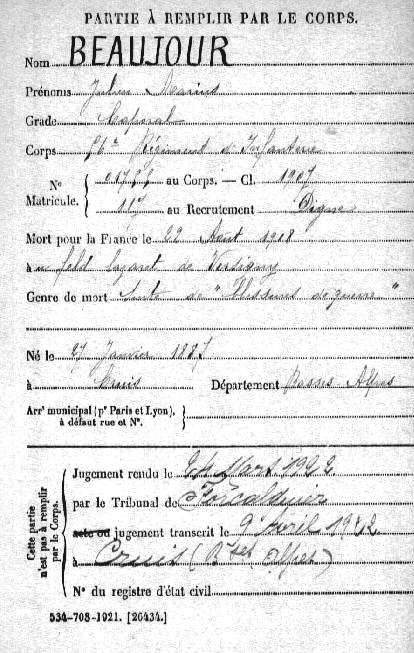 PARTIE À REMPLIR PAR LE CORPS.
Nom BEAUJOUR
Prénoms Julien Marius
Grade Caporal
Corps Régiment d'Infanterie
Nº Matricule. { au Corps. — Cl. 1907
117 au Recrutement Digne
Mort pour la France le 22 Août 1918
à feld lazaret de
Genre de mort Suite de "Blessures de guerre"
Né le 27 Janvier 1887
à Cruis Département Basses-Alpes
Arrᵗ municipal (pʳ Paris et Lyon), à défaut rue et Nº. }
Cette partie n'est pas à remplir par le Corps.
Jugement rendu le 24 Mars 1922
par le Tribunal de Forcalquier
acte ou jugement transcrit le 9 Avril 1922
à Cruis (Bses Alpes)
Nº du registre d'état civil
534-708-1921. [26434.]